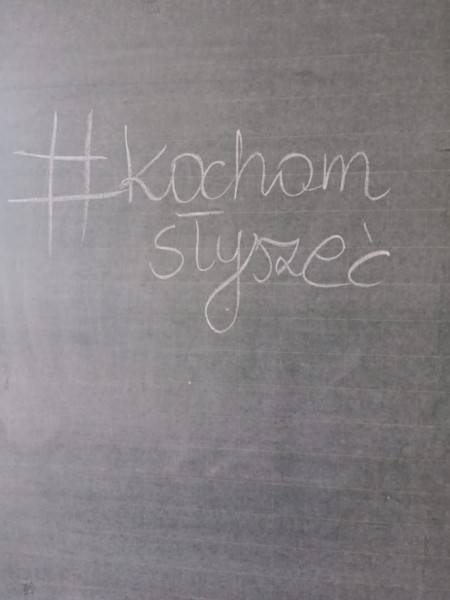 #kocham
słyszeć